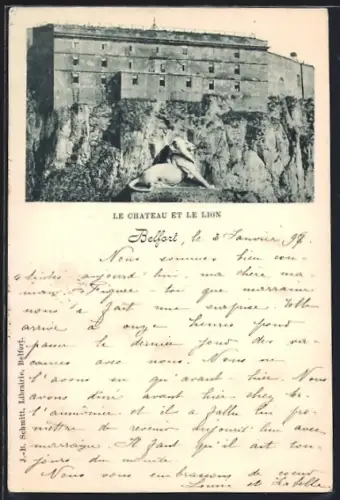 LE CHATEAU ET LE LION
Belfort, le 3 Janvier 98.
Nous sommes bien con-
tentes aujourd'hui, ma chère ma-
man. Figure-toi que marraine
nous a fait une surprise. Elle
arrive à onze heures pour
passer le dernier jour des va-
cances avec nous. Nous ne
l'avons su qu'avant-hier. Nous
avons diné avant hier chez
l'annonce et il a fallu lui pro-
mettre de revenir aujourd'hui avec
marraine. Il faut qu'il ait tou-
jours du monde.
Nous vous embrassons de coeur
Louise et Isabelle
J.-B. Schmitt, Librairie, Belfort.